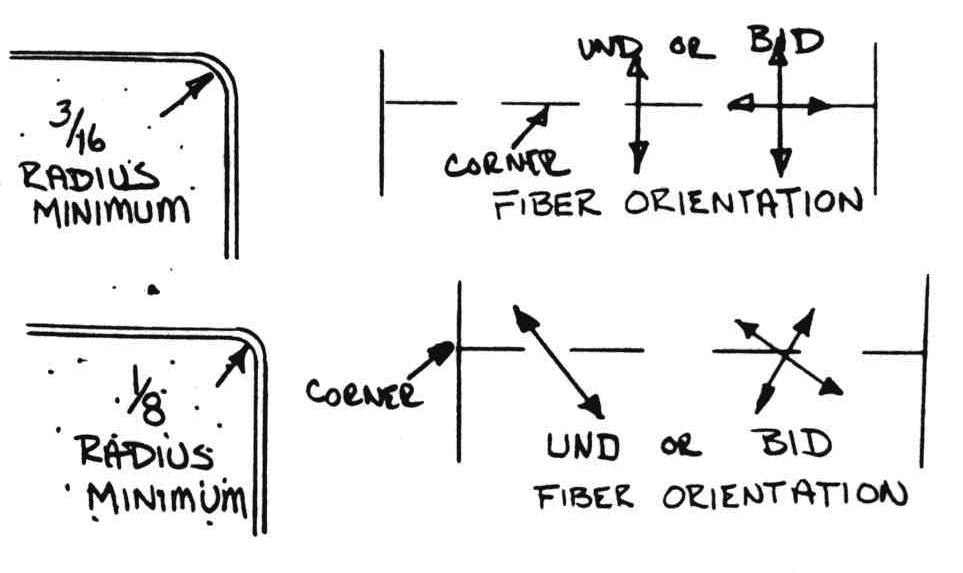 3/16
RADIUS
MINIMUM
UND OR BID
CORNER
FIBER ORIENTATION
1/8
RADIUS
MINIMUM
CORNER
UND OR BID
FIBER ORIENTATION